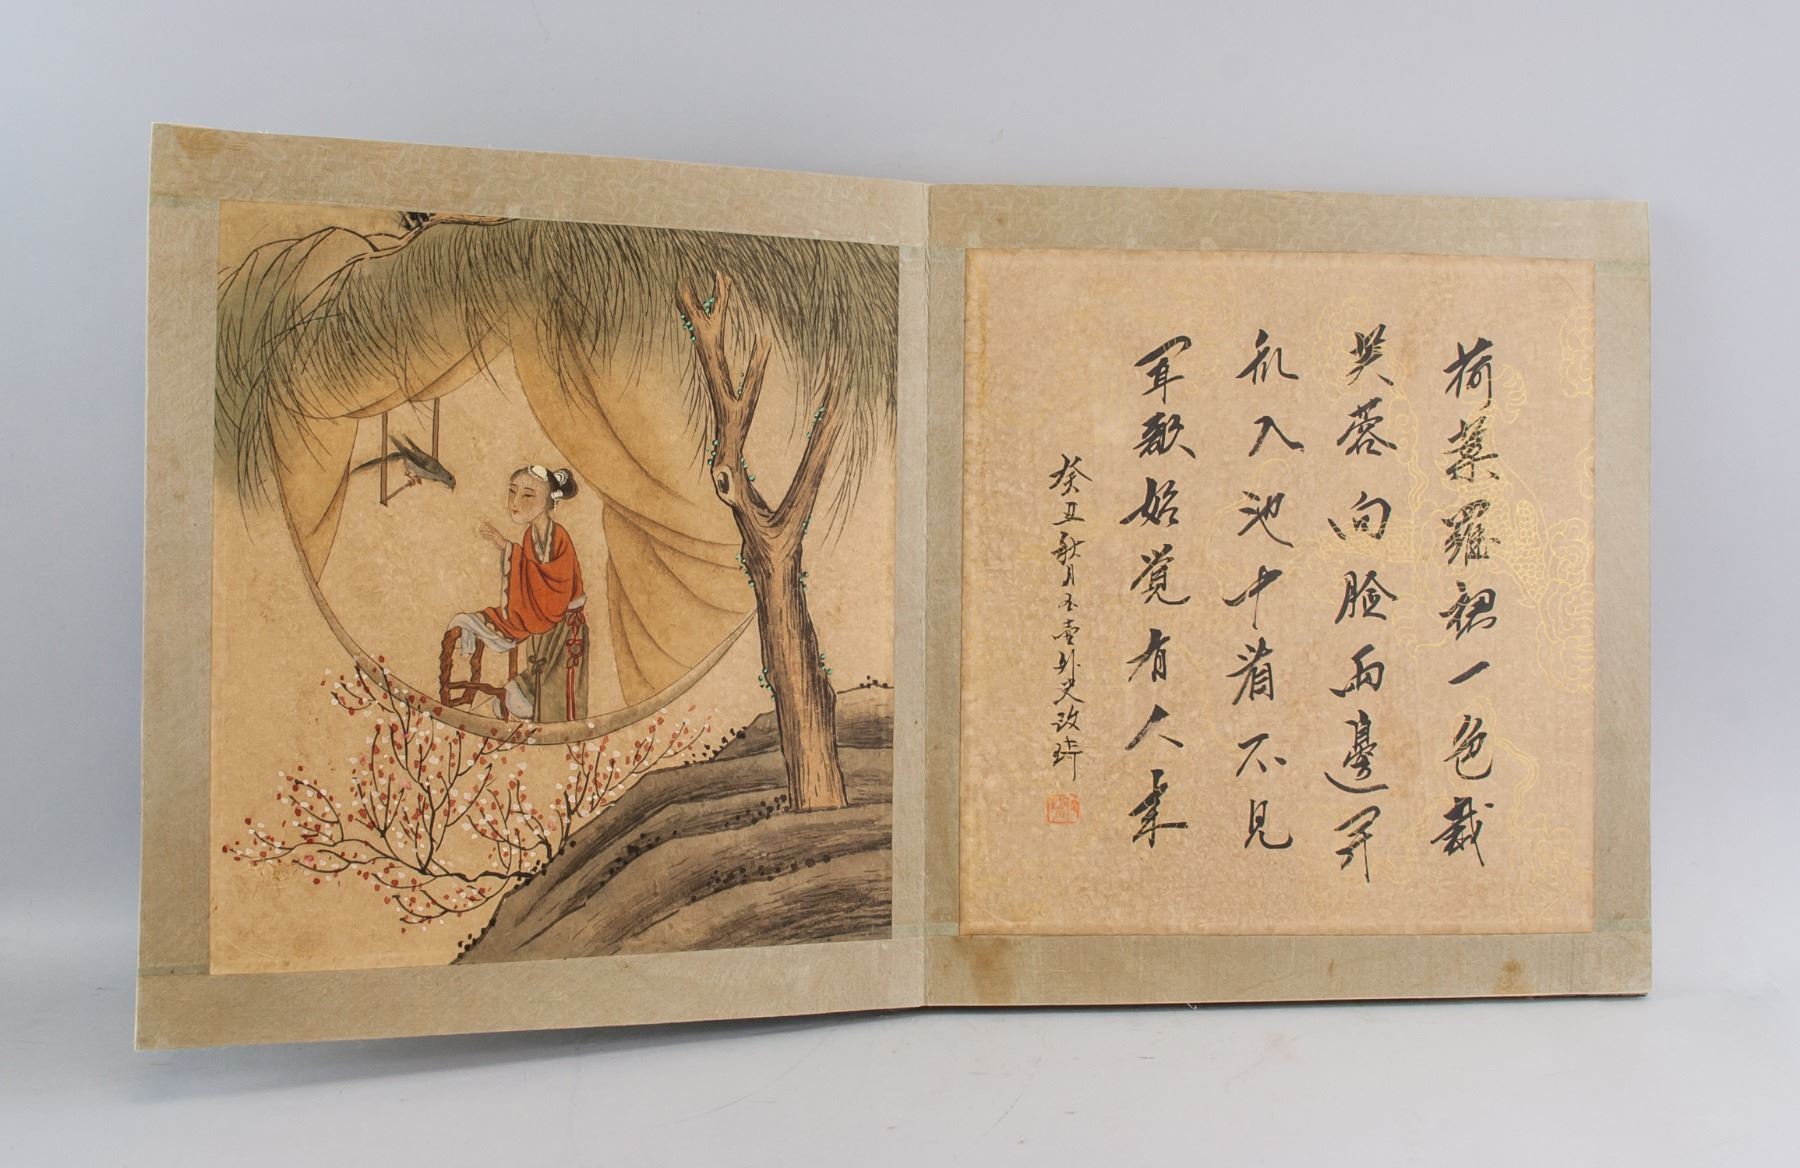 荷葉羅裙一色裁
芙蓉向臉兩邊开
乱入池中看不見
闻歌始覺有人来
癸丑秋月玉壺外史改琦